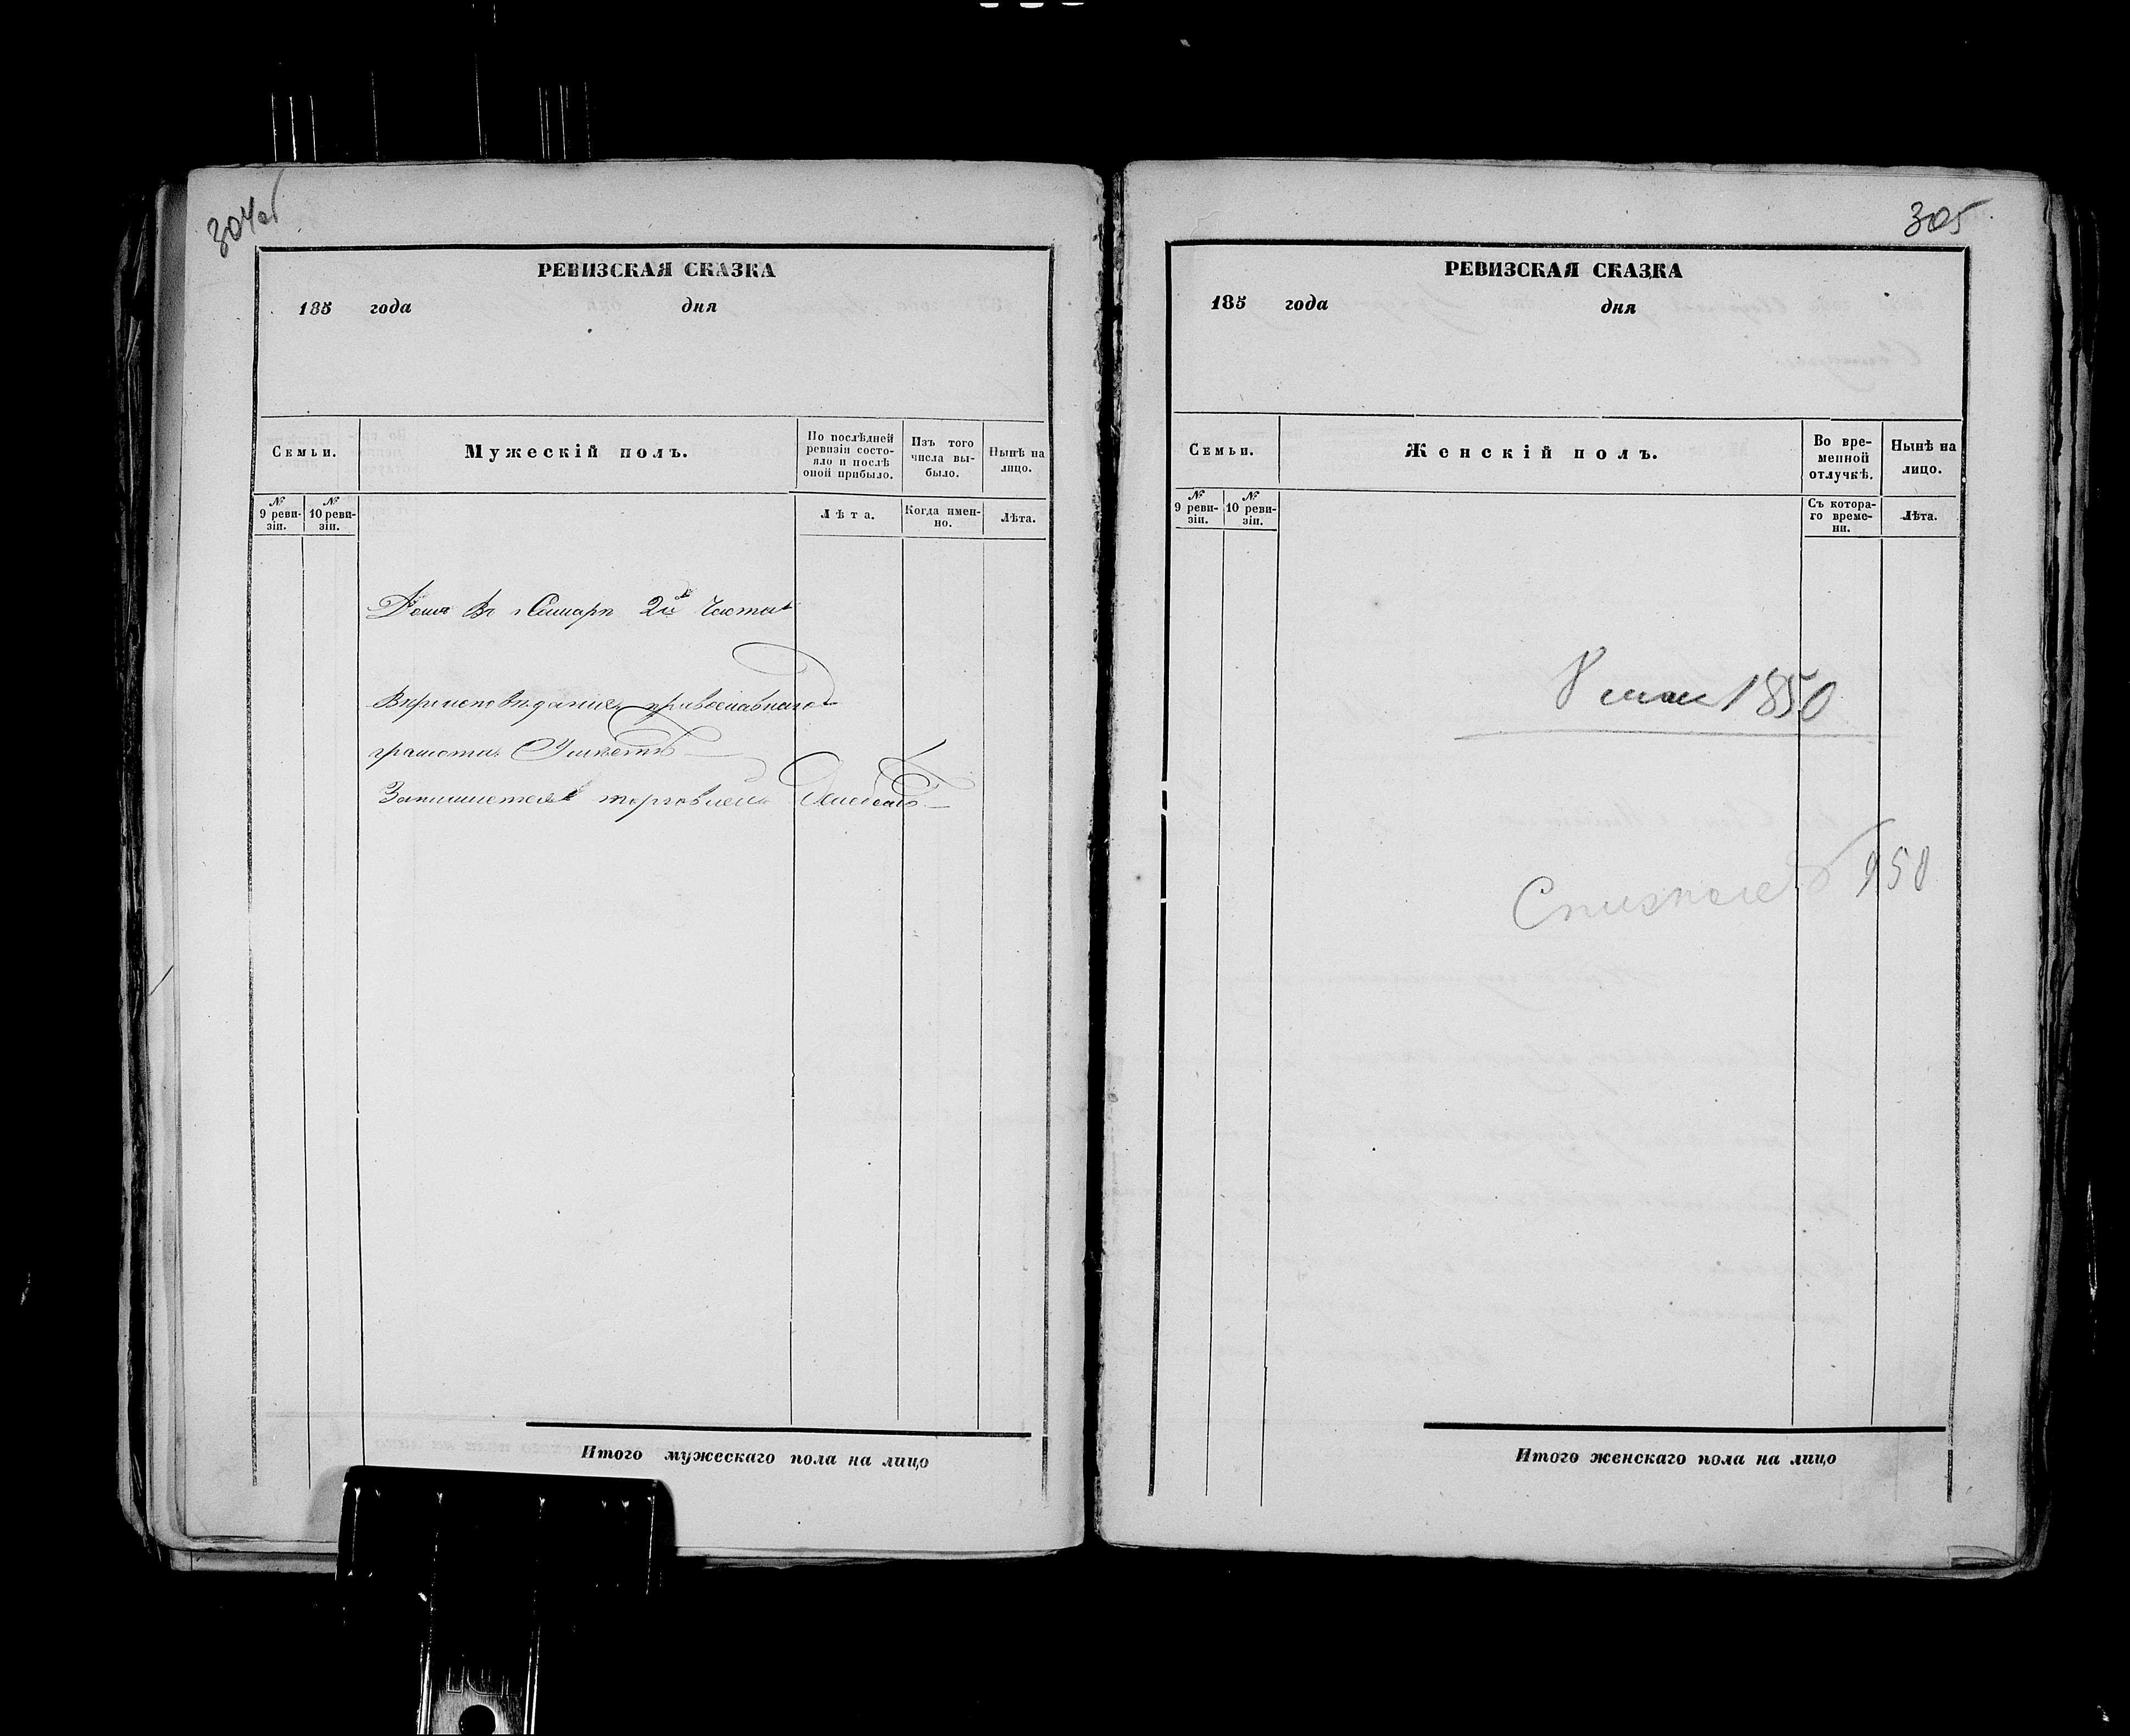 304об
РЕВИЗСКАЯ СКАЗКА
185 года дня
Семьи.
Мужескій полъ.
По послѣдней ревизіи состояло и послѣ оной прибыло.
Изъ того числа выбыло.
Нынѣ на лицо.
№ 9 ревизіи.
№ 10 ревизіи.
Лѣта.
Когда именно.
Лѣта.
Домъ въ г Самарѣ 2й Части
Вѣроисповѣданія православнаго
грамотѣ Умѣетъ
Занимается торговлей
Итого мужескаго пола на лицо
305
РЕВИЗСКАЯ СКАЗКА
185 года дня
Семьи.
Женскій полъ.
Во временной отлучкѣ.
Нынѣ на лицо.
№ 9 ревизіи.
№ 10 ревизіи.
Съ котораго времени.
Лѣта.
8 мая 1850
Итого женскаго пола на лицо